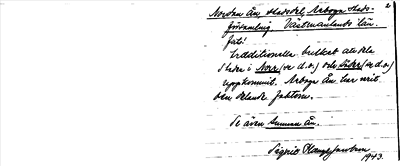 2
Nordan Ån, stadsdel, Arboga stads-
församling, Västmanlands län.
Fats!
Traditionella bruket att dela
staden i Norr (se d.o.) och Söder (se d.o.)
uppkommit. Arboga Ån har varit
den delande faktorn.
Se även Sunnan Ån.
Signe
1943.